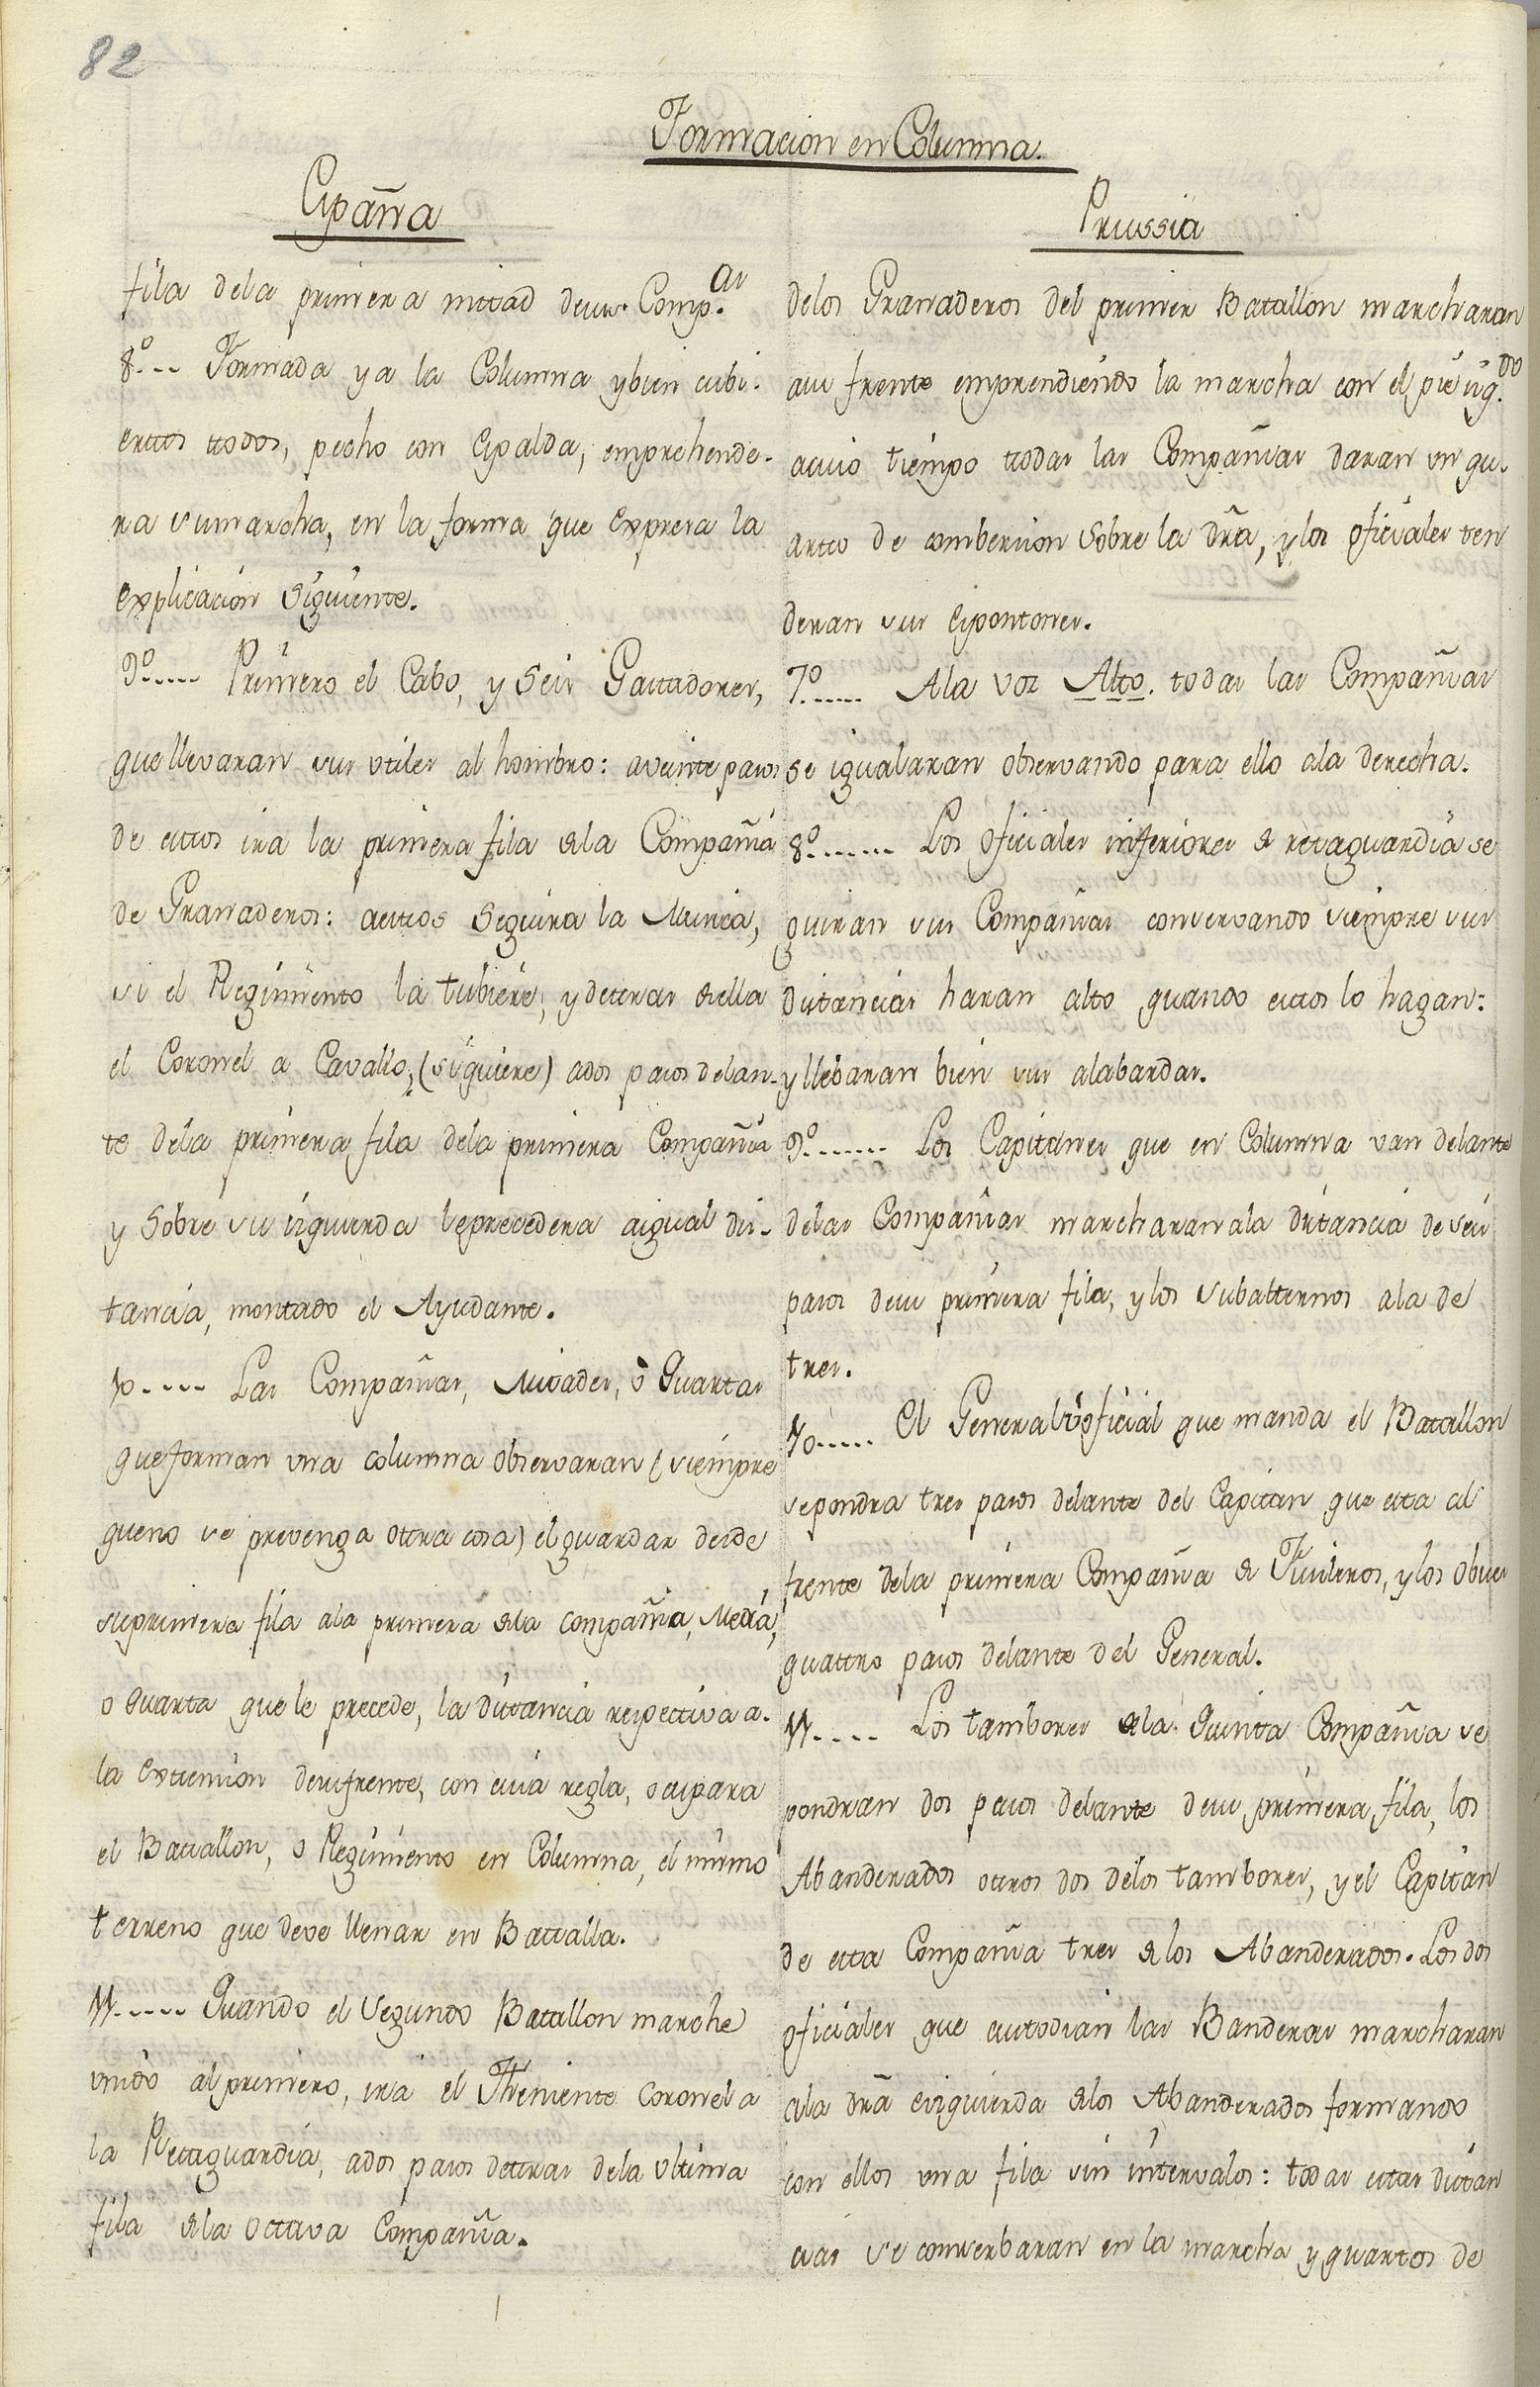 82
Formacion en Columna.
España
fila dela primera mitad desus Comp.as
8º... Formada ya la Columna y bien cubi-
ertos todos, pecho con Espalda, emprehende-
ra su marcha, en la forma que Expresa la
explicacion Siguiente.
9º..... Primero el Cabo, y Seis Gastadores,
que llevaran sus utiles al hombro: aveinte pasos
de estos ira la primera fila dela Compañia
de Granaderos: aestos Seguira la Musica,
si el Regimiento la tubiere, y detras deella
el Coronel a Cavallo, (siguiere) ados pasos delan-
te dela primera fila dela primera Compañia
y Sobre su izquierda leprecedera aigual dis-
tancia, montado el Ayudante.
10..... Las Compañias, Mitades, ò Quartas
que forman una columna observaran (siempre
queno se prevenga otra cosa) el guardar desde
suprimera fila ala primera dela compañia, Media,
o quarta que le precede, la distancia respectiva a-
la extension desufrente, con cuia regla, ocupara
el Batallon, o Regimiento en Columna, el mismo
terreno que deve llenar en Batalla.
11..... Quando el Segundo Batallon marche
unido al primero, irá el Theniente Coronel a
la Retaguardia, ados pasos detras dela ultima
fila dela octava Compañia.
Prussia
delos Granaderos del primer Batallon marcharan
asu frente emprendiendo la marcha con el pie izq.do
acuio tiempo todas las Compañias daran un qu-
arto de combersion Sobre la dr̃a, y los oficiales ten
deran sus Espontones.
7º..... A la voz Alto. todas las Compañias
se igualaran observando para ello ala derecha.
8º....... Los Oficiales inferiores de retaguardia se
guiran sus Compañias conservando siempre sus
distancias haran alto quando estos lo hagan:
y llebaran bien sus alabardas.
9º....... Los Capitanes que en Columna van delante
delas Compañias marcharan ala distancia de seis
pasos desu primera fila, y los subalternos a la de
tres.
10..... El General ù oficial que manda el Batallon
sepondra tres pasos delante del Capitan que esta al
frente dela primera Compañia de Fusileros, y los Obues
quattro pasos delante del General.
11..... Los tambores dela Quinta Compañia se
pondran dos pasos delante desu primera fila, los
Abanderados otros dos delos tambores, y el Capitan
de esta Compañia tres delos Abanderados. Los dos
oficiales que custodian las Banderas marcharan
ala dr̃a eizquierda delos Abanderados formando
con ellos una fila sin intervalos: todas estas distan
cias se conserbaran en la marcha y quartos de